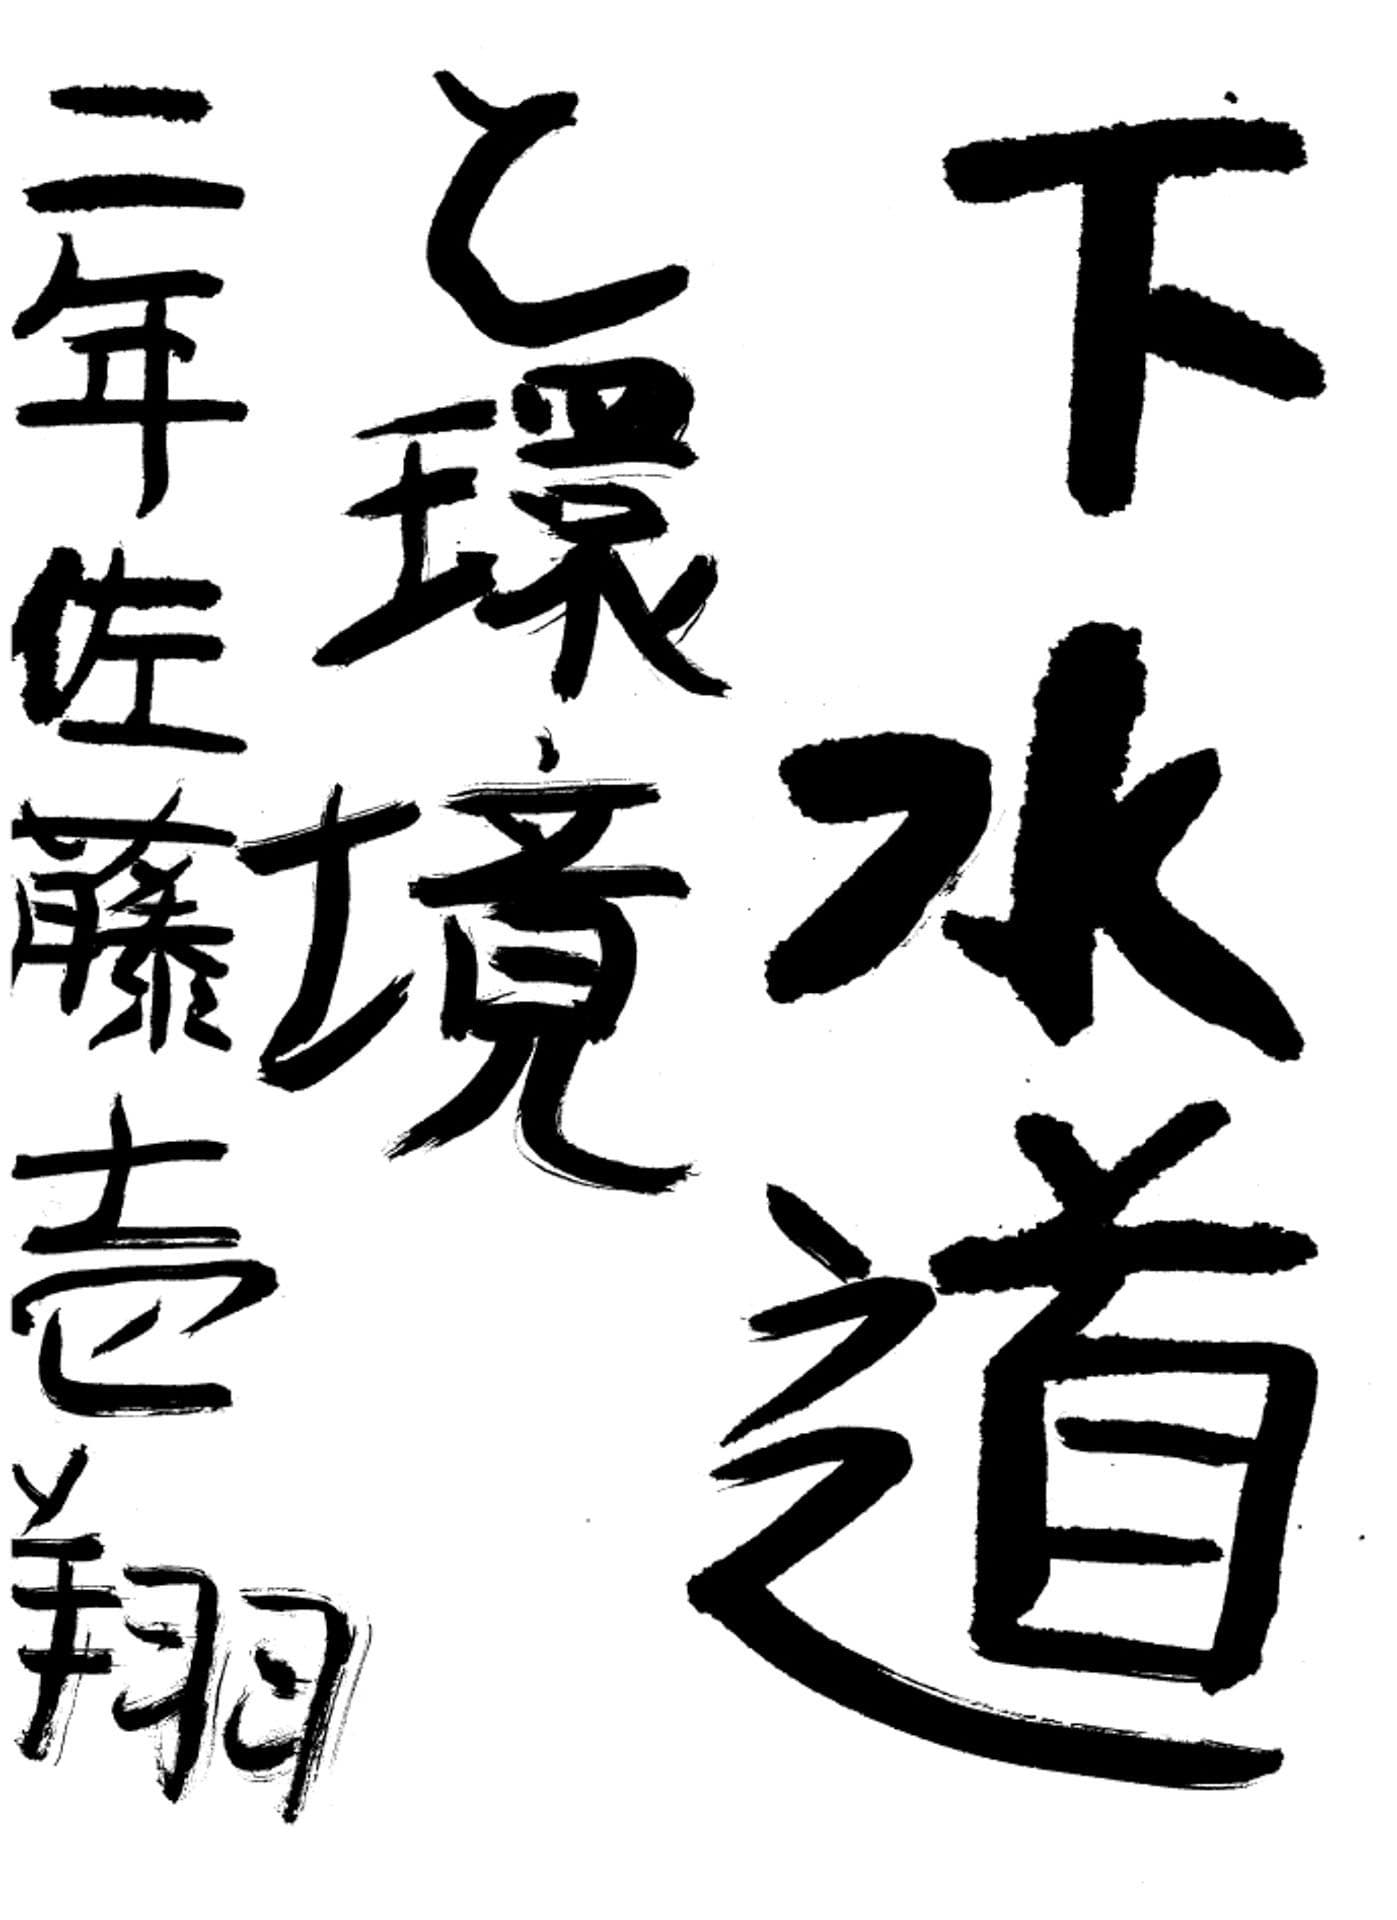 下水道
と環境
二年佐藤壱翔